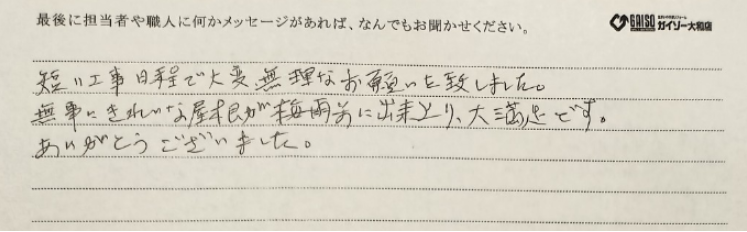 最後に担当者や職人に何かメッセージがあれば、なんでもお聞かせください。
GAISO
ガイソー大和店
短い工事日程で大変無理なお願いを致しました。
無事にきれいな屋根が梅雨前に出来上り、大満足です。
ありがとうございました。